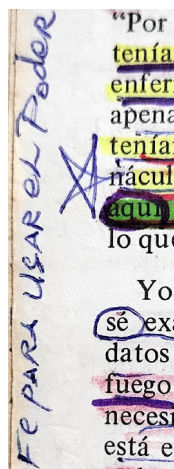 Fe PARA USAR EL PODER
“Por
tenía
enfer
apena
tenía
nácul
aquí
lo que
Yo
sé exa
datos
fuego
neces
está e